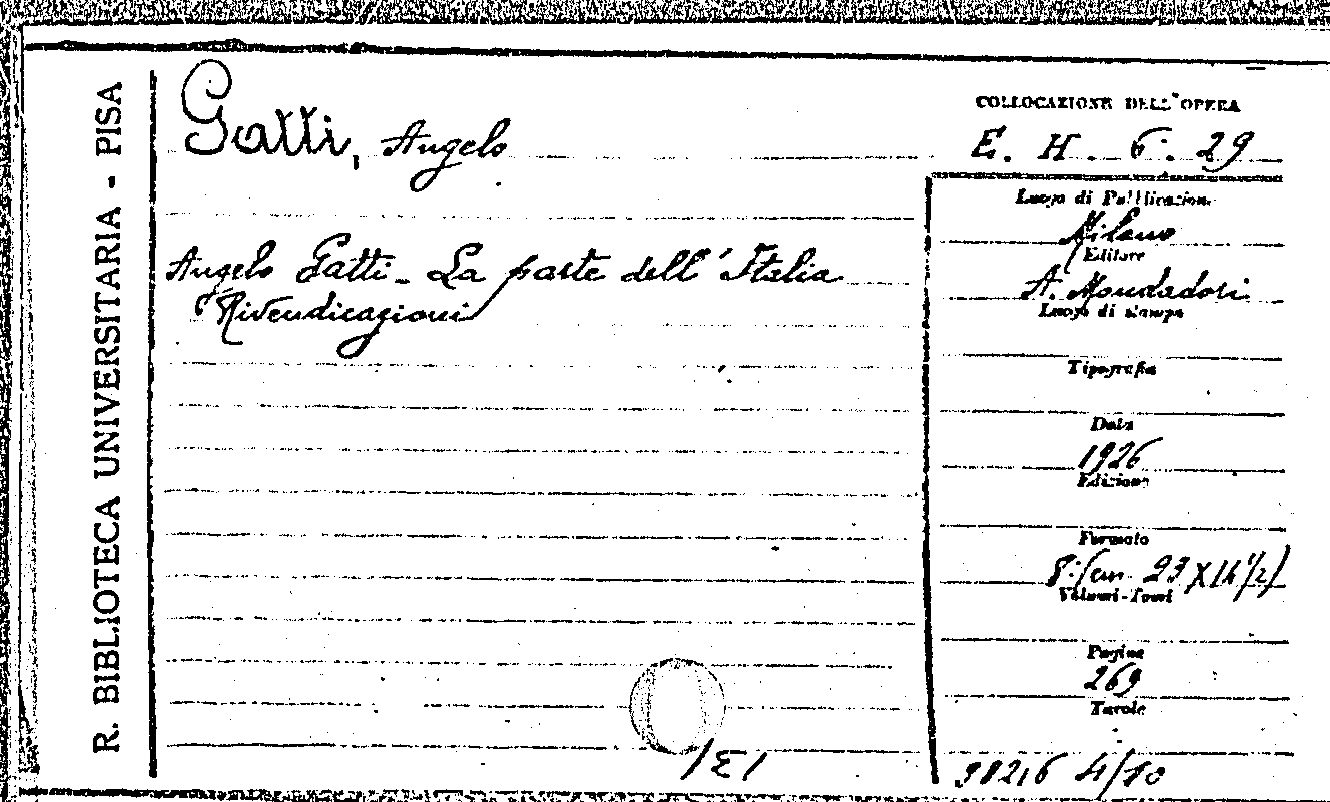 R. BIBLIOTECA UNIVERSITARIA - PISA
Gatti, Angelo
Angelo Gatti - La parte dell'Italia
Rivendicazioni
COLLOCAZIONE DELL'OPERA
E. H. 6. 29
Luogo di Pubblicazione
Milano
Editore
A. Mondadori
Luogo di stampa
Tipografia
Data
1926
Edizione
Formato
8° (cm. 23 X 14 1/2)
Volumi-Tomi
Pagine
269
Tavole